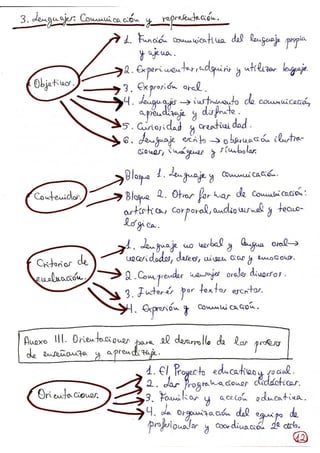 3. Lenguajes: Comunicación y representación.
1. Función comunicativa del lenguaje propia
y ajena.
2. Experimentar, adquirir y utilizar lenguaje.
Objetivos.
3. Expresión oral.
4. Lenguajes → instrumento de comunicación,
aprendizaje y disfrute.
5. Curiosidad y creatividad.
6. Lenguaje escrito → observación ilustra-
ciones, imágenes y símbolos.
Contenidos.
Bloque 1. Lenguaje y comunicación.
Bloque 2. Otras formas de comunicación:
artística, corporal, audiovisual y tecno-
lógica.
Criterios de
evaluación.
1. Lenguaje no verbal y lengua oral →
necesidades, deseos, vivencias y emociones.
2. Comprender mensajes orales diversos.
3. Interés por textos escritos.
4. Expresión y comunicación.
Anexo III. Orientaciones para el desarrollo de los procesos
de enseñanza y aprendizaje.
Orientaciones.
1. El Proyecto educativo y social.
2. Las Programaciones didácticas.
3. Familias y acción educativa.
4. La organización del equipo de
profesionales y coordinación 2º ciclo.
12